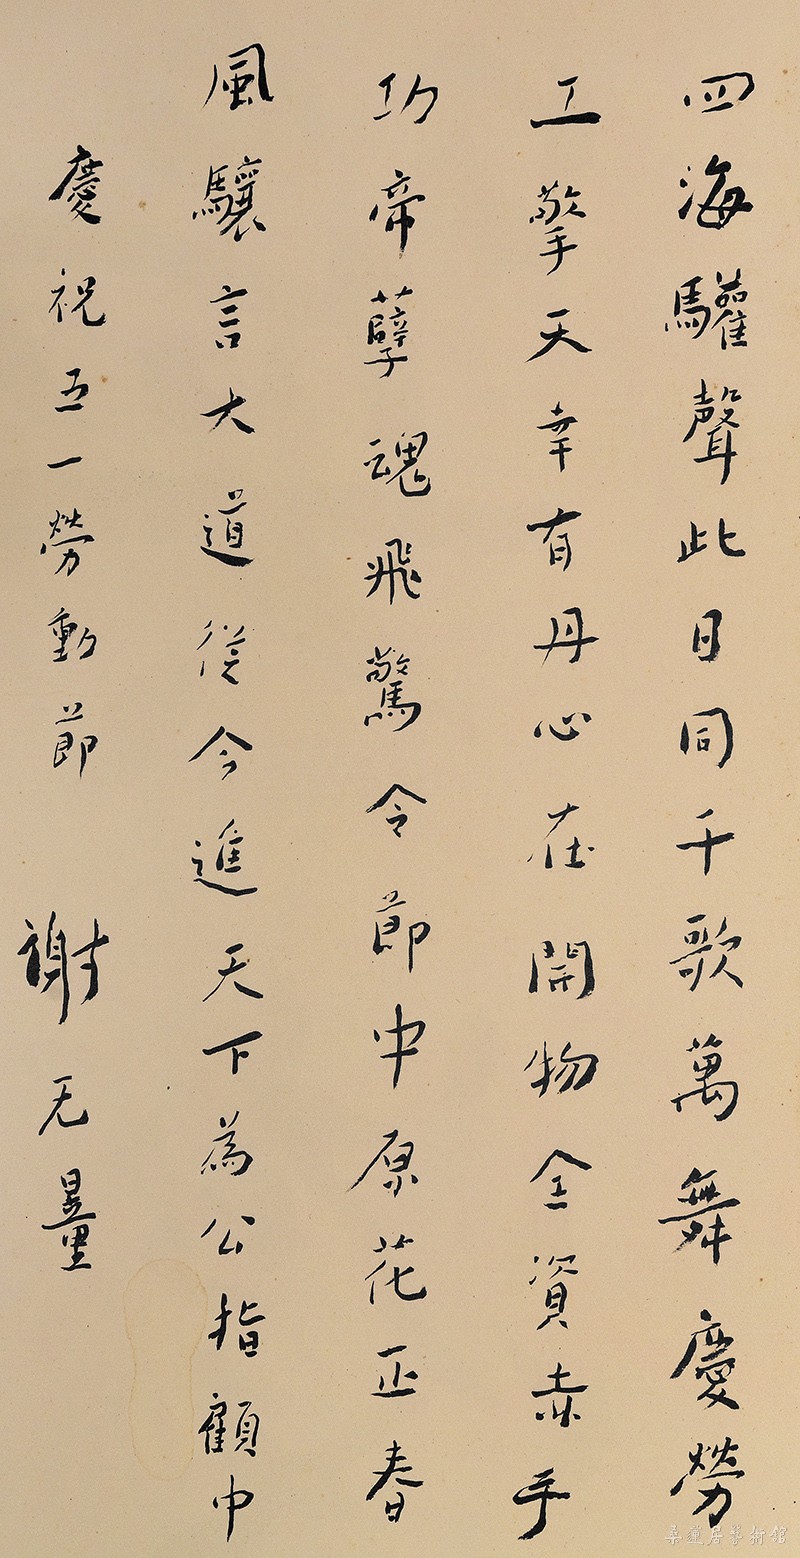 四海驩聲此日同千歌萬舞慶勞
工擎天幸有丹心在開物全資赤手
功帝孽魂飛驚令節中原花正春
風驤言大道從今進天下為公指顧中
慶祝五一勞動節 謝无量
桑蓮居藝術馆